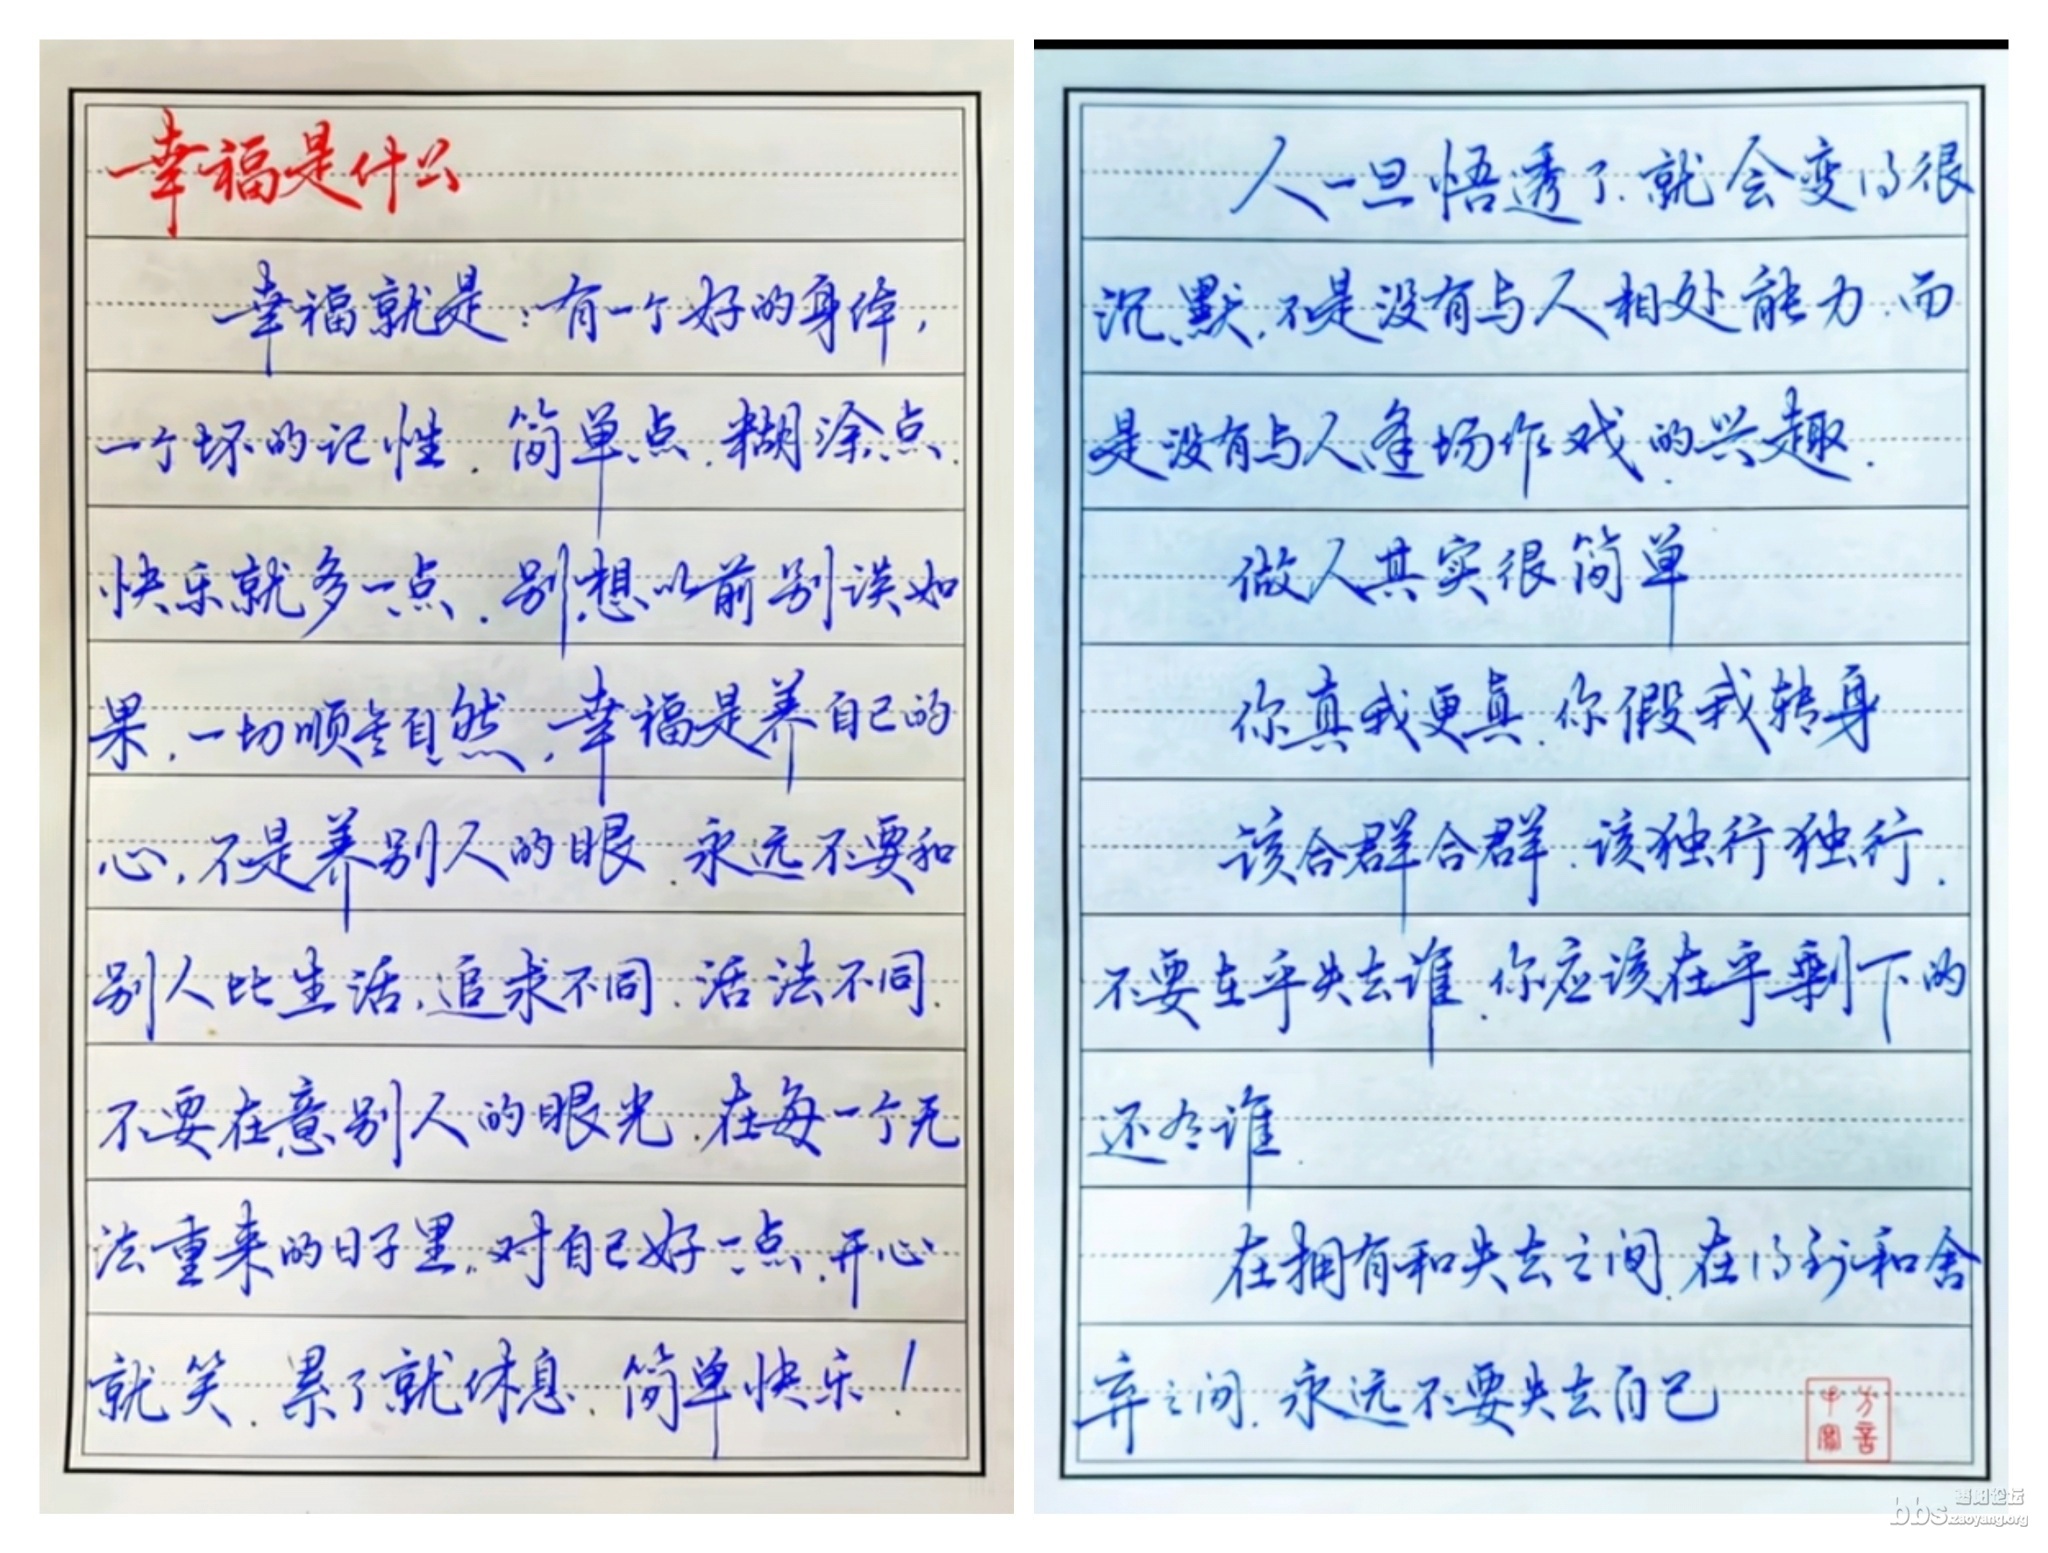 幸福是什么
幸福就是：有一个好的身体，
一个坏的记性．简单点．糊涂点．
快乐就多一点．别想以前别谈如
果，一切顺其自然，幸福是养自己的
心，不是养别人的眼．永远不要和
别人比生活，追求不同．活法不同．
不要在意别人的眼光．在每一个无
法重来的日子里，对自己好一点，开心
就笑．累了就休息．简单快乐！
人一旦悟透了．就会变得很
沉默，不是没有与人相处能力．而
是没有与人逢场作戏的兴趣．
做人其实很简单
你真我更真．你假我转身
该合群合群．该独行独行．
不要在乎失去谁．你应该在乎剩下的
还有谁．
在拥有和失去之间．在得到和舍
弃之间．永远不要失去自己
bbs.zaoyang.org